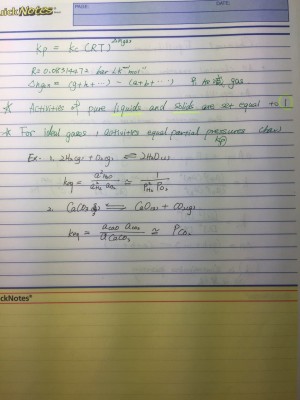 QuickNotes®
PAGE:
DATE:
Kp = Kc (RT)^Δngas
R = 0.0831447 bar L K⁻¹ mol⁻¹
Δngas = (g+h+…) - (a+b+…) gas
* Activities of pure liquids and solids are set equal to 1
* For ideal gases, activities equal partial pressures
Ex. 1. 2H₂(g) + O₂(g) ⇌ 2H₂O(l)
Keq = a²H₂O / a²H₂ aO₂ ≅ 1 / P²H₂ PO₂
2. CaCO₃(s) ⇌ CaO(s) + CO₂(g)
Keq = aCaO aCO₂ / aCaCO₃ ≅ PCO₂
ckNotes®